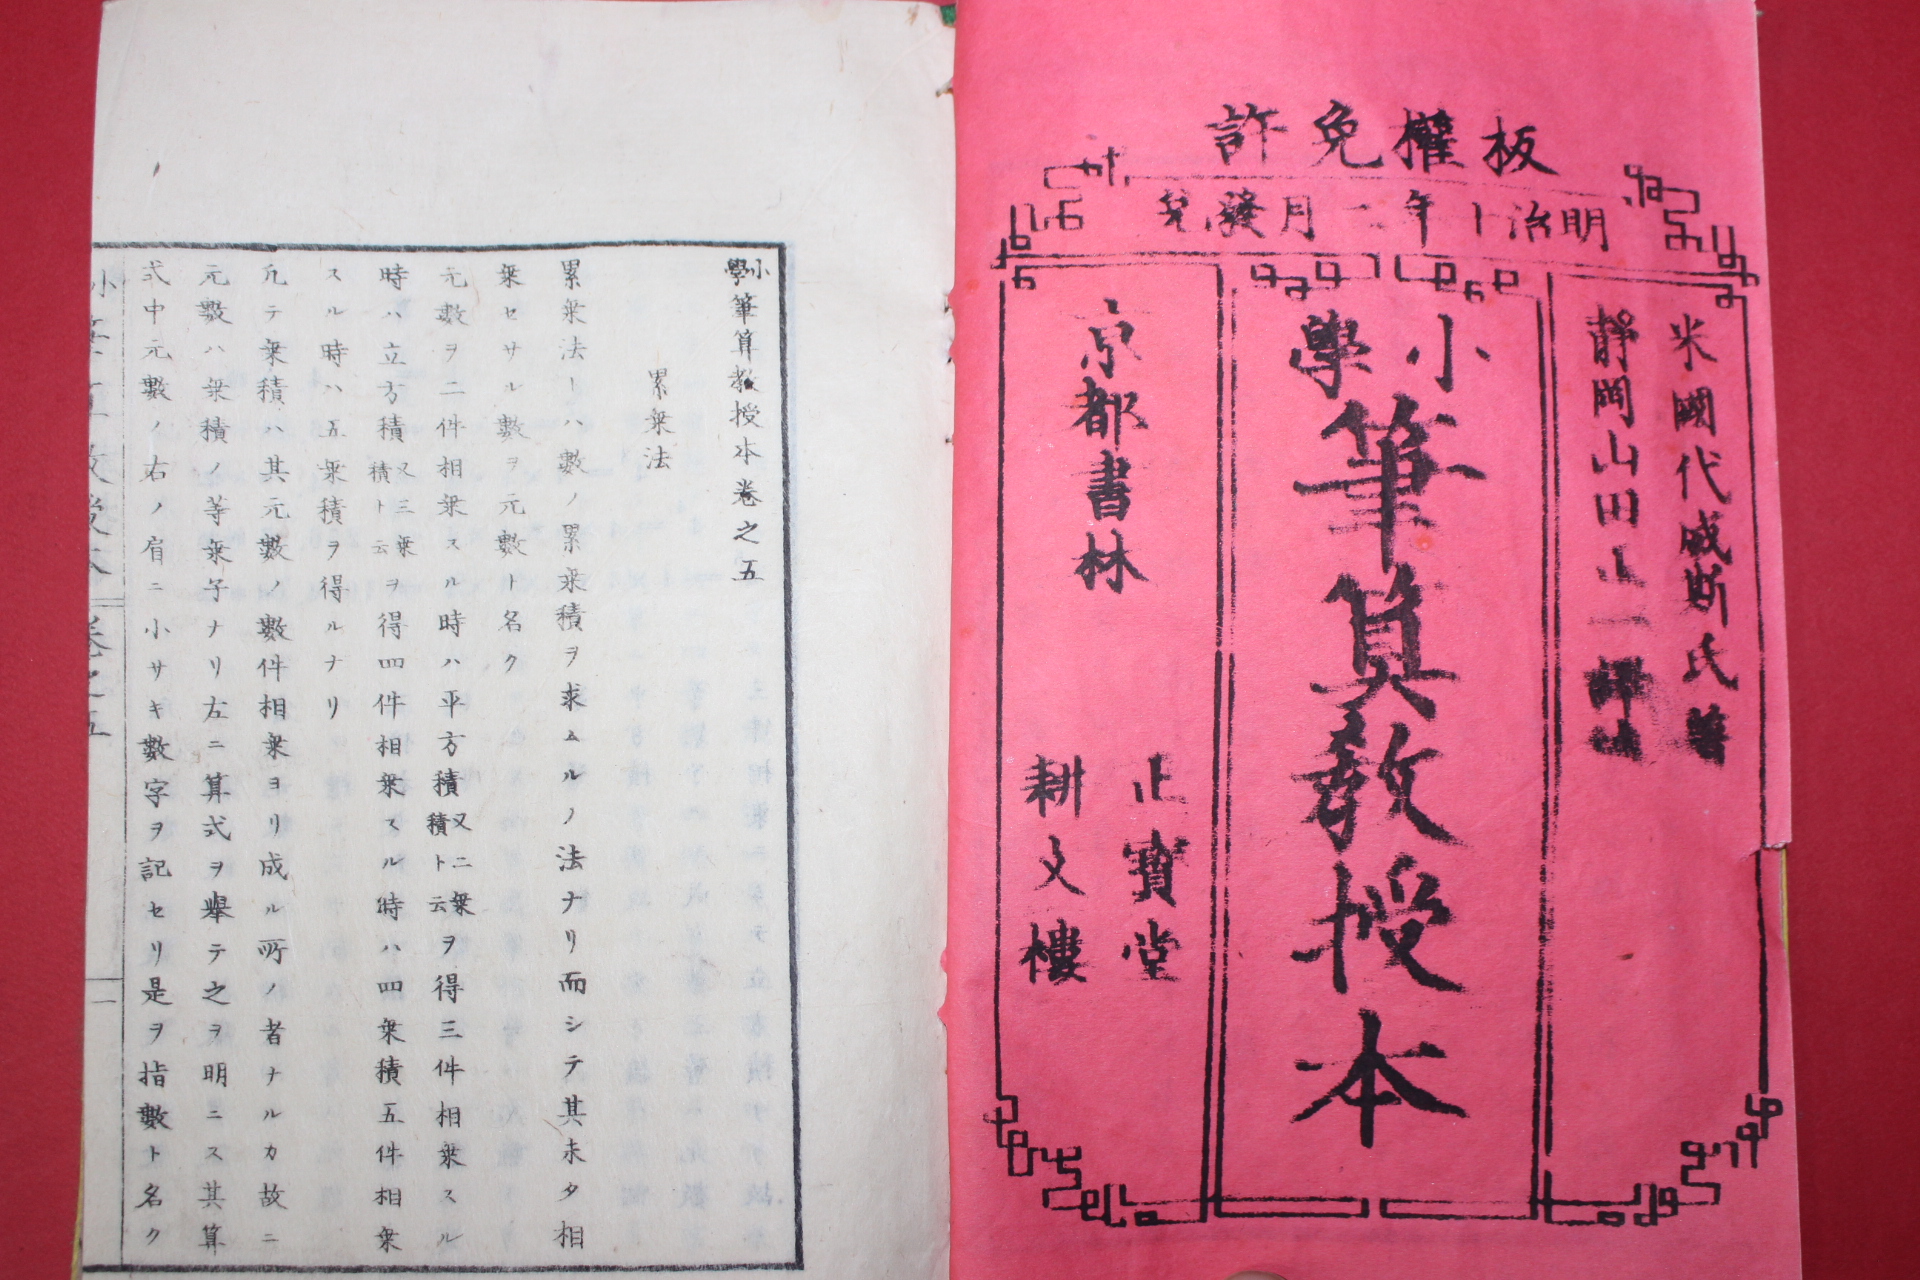 板權免許
明治十年二月發兌
米國代威斯氏著
靜岡山田正一譯述
小學筆算教授本
京都書林
正寶堂
耕文樓
小學筆算教授本卷之五
累乗法
累乗法トハ數ノ累乗積ヲ求ムルノ法ナリ而シテ其未タ相
乗セサル數ヲ元數ト名ク
元數ヲ二件相乗スル時ハ平方積又二乗積ト云ヲ得三件相乗スル
時ハ立方積又三乗積ト云ヲ得四件相乗スル時ハ四乗積五件相乗
スル時ハ五乗積ヲ得ルナリ
凡テ乗積ハ其元數ノ數件相乗ヨリ成ル所ノ者ナルカ故ニ
元數ハ乗積ノ等乗子ナリ左ニ算式ヲ擧テ之ヲ明ニス其算
式中元數ノ右ノ肩ニ小サキ數字ヲ記セリ是ヲ指數ト名ク